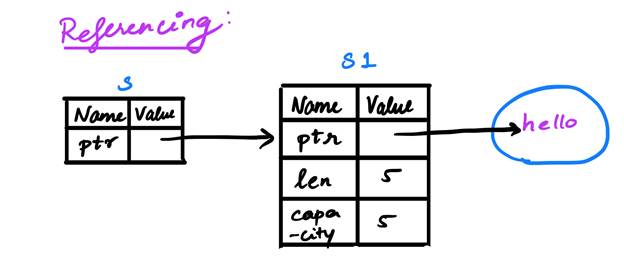 Referencing:
s
Name Value
ptr
s1
Name Value
ptr
len 5
capa
-city 5
hello